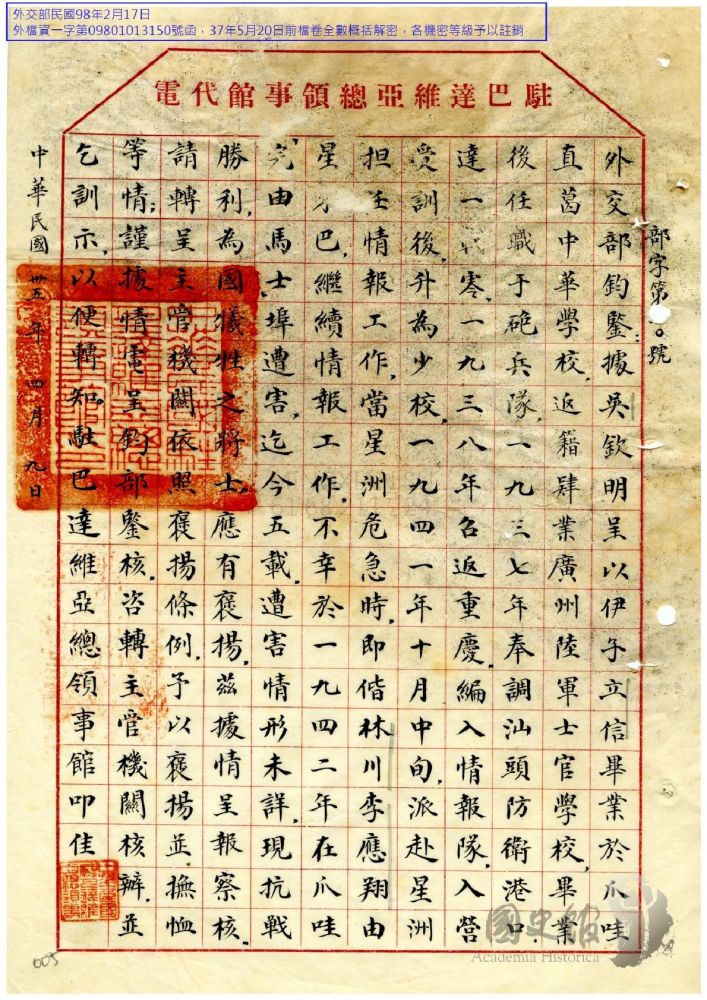 外交部民國98年2月17日
外檔資一字第09801013150號函，37年5月20日前檔卷全數概括解密，各機密等級予以註銷
駐巴達維亞總領事館代電
部字第號
外交部鈞鑒：據吳欽明呈以伊子立信畢業於爪哇
直葛中華學校，返籍肄業廣州陸軍士官學校，畢業
後任職于砲兵隊，一九三七年奉調汕頭防衛港口．
達一載零．一九三八年召返重慶，編入情報隊，入營
受訓後，升為少校，一九四一年十月中旬，派赴星洲
担任情報工作，當星洲危急時，即偕林川李應翔由
星巴，繼續情報工作，不幸於一九四二年在爪哇
由馬士埠遭害，迄今五載，遭害情形未詳，現抗戰
勝利，為國犧牲之將士，應有褒揚，茲據情呈報察核，
請轉呈主管機關依照褒揚條例，予以褒揚並撫恤
等情；謹據情電呈鈞部鑒核．咨轉主管機關核辦．並
乞訓示，以便轉知。駐巴達維亞總領事館叩佳
中華民國卅五年四月九日
005
國史館
Academia Historica